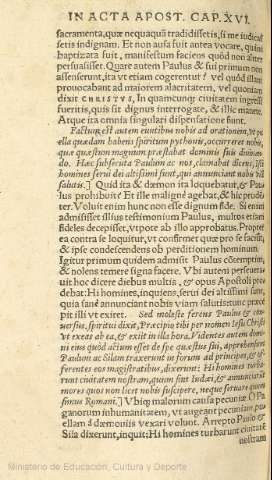 IN ACTA APOST. CAP. XVI.
sacramenta, quæ nequaquā tradidissetis, si me iudicas
setis indignam. Et non ausa fuit antea vocare, quàm
baptizata fuit, manifestum faciens quòd non aliter
persuasisset. Quare autem Paulus & sui primùm non
assenserunt, ita vt etiam cogerentur? vel quòd illam
prouocabant ad maiorem alacritatem, vel quoniam
dixit CHRISTVS, In quamcunq; ciuitatem ingressi
fueritis, quis sit dignus interrogate, & illic manete.
Atque ita omnia singulari dispensatione sunt.
Factum est autem euntibus nobis ad orationem, vt pu
ella quædam habens spiritum pythonis, occurreret nobis,
quæ quæstum magnum præstabat dominis suis diuinan
do. Hæc subsecuta Paulum ac nos, clamabat dicens, Hi
homines serui dei altissimi sunt, qui annunciant nobis viā
salutis.] Quid ita & dæmon ita loquebatur, & Pau
lus prohibuit? Et ille malignè agebat, & hic prudēs
ter. Voluit enim hunc non esse dignum fide. Si enim
admisisset illius testimonium Paulus, multos etiam
fideles decepisset, vtpote ab illo approbatus. Proptere
ea contra se loquitur, vt confirmet quæ pro se facit,
& ipse condescendens ob perditionem hominum.
Igitur primùm quidem admisit Paulus cōtemptim,
& nolens temere signa facere. Vbi autem perseuera
uit hoc dicere diebus multis, & opus Apostoli præ
debat: Hi homines, inquiens, serui dei altissimi sunt,
quia sanè annunciant nobis viam salutis: tunc præce
pit illi vt exiret. Sed molestè ferens Paulus & con
uersus, spiritui dixit, Præcipio tibi per nomen Iesu Christi
vt exeas ab ea, & exiit in illa hora. Videntes autem domi
ni eius quòd abiisset spes quæstus sui, apprehensum
Paulum ac Silam traxerunt in forum ad principes, & of
ferentes eos magistratibus, dixerunt: Hi homines turba-
runt ciuitatem nostram, quum sint Iudæi, & annunciant
mores quos non licet nobis suscipere, neque seruare quum
simus Romani.] Vbiq; malorum causa pecuniæ. O Pa
ganorum inhumanitatem, vt augeant pecuniam, pu
ellam à dæmoniis vexari volunt. Arrepto Paulo &
Sila dixerunt, inquit: Hi homines turbarunt ciuitatē
nostram
Ministerio de Educación, Cultura y Deporte